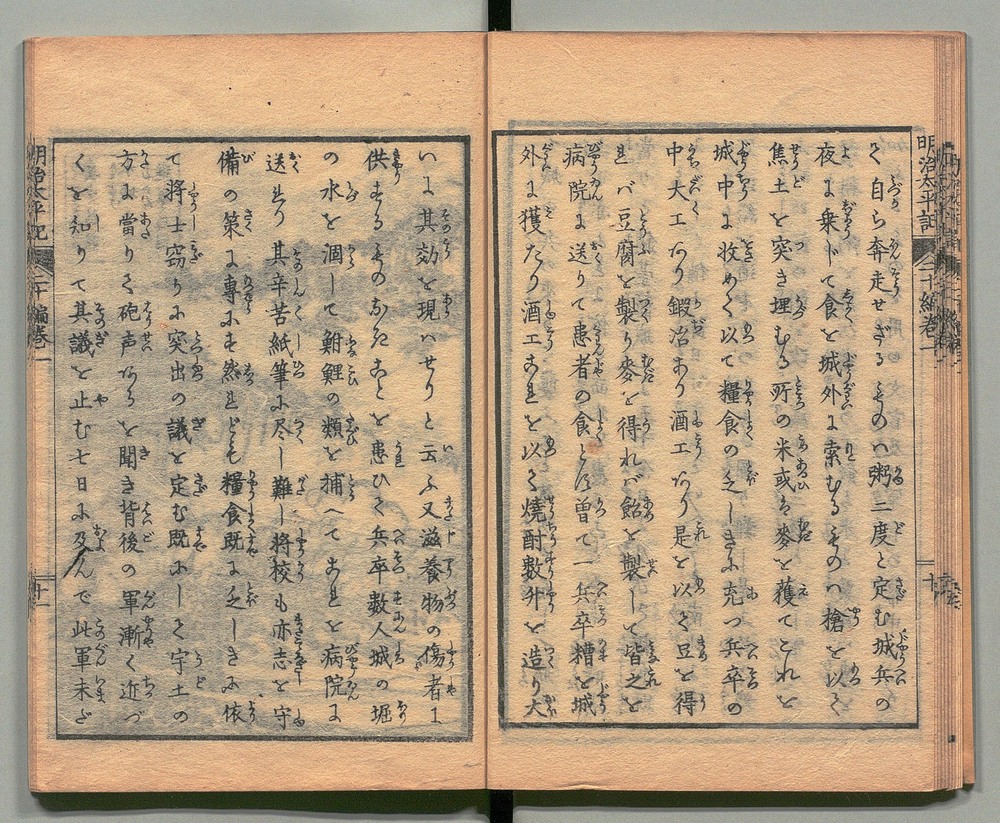 明治太平記 二十編巻一
て自ら奔走せざるものハ粥二度と定む城兵の
夜に乗じて食を城外に索むるものハ槍を以て
焦土を突き埋むる所の米或は麥を獲てこれを
城中に收めて以て糧食の乏しきに充つ兵卒の
中大工あり鍛冶あり酒工あり是を以て豆を得
れバ豆腐を製り麥を得れバ飴を製して皆之を
病院に送りて患者の食とす曾て一兵卒糟を城
外に獲たり酒工これを以て焼酎数升を造り大
いに其効を現ハせりと云ふ又滋養物の傷者に
供するものなきことを患ひて兵卒数人城の堀
の水を涸して鮒鯉の類を捕へてこれを病院に
送れり其辛苦紙筆に尽し難し将校も亦志を守
備の策に専にす然れども糧食既に乏しきに依
て将士窃かに突出の議を定む既にして宇土の
方に當りて砲声あるを聞き背後の軍漸く近づ
くを知りて其議を止む七日に及んで此軍未だ
明治太平記 二十編巻一